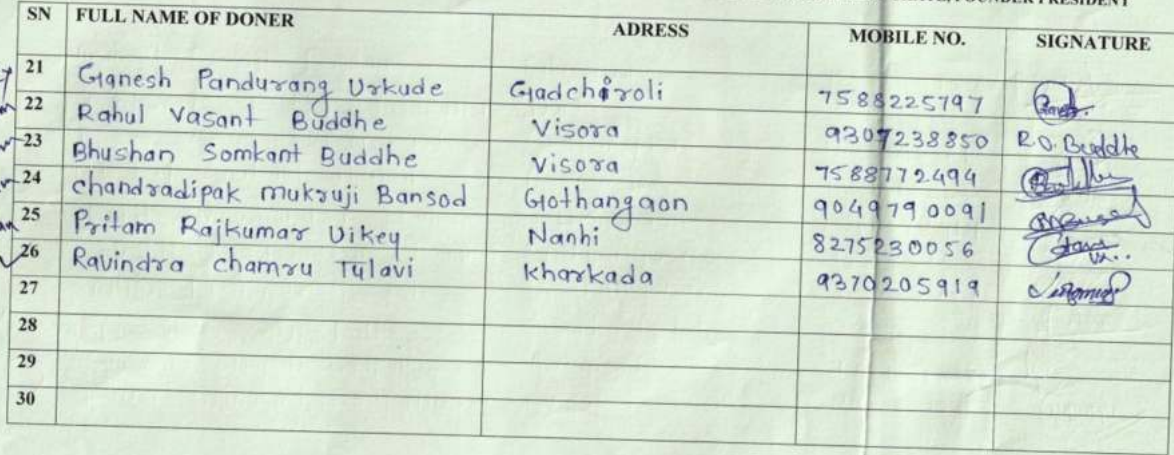 FOUNDER PRESIDENT
SN FULL NAME OF DONER ADRESS MOBILE NO. SIGNATURE
21 Ganesh Pandurang Urkude Gadchiroli 7588225797
22 Rahul Vasant Buddhe Visora 9307238850 R.O. Buddhe
23 Bhushan Somkant Buddhe Visora 7588772494
24 chandradipak mukruji Bansod Gothangaon 9049790091
25 Pritam Rajkumar Uikey Nanhi 8275230056
26 Ravindra chamru Tulavi kharkada 9370205919
27
28
29
30